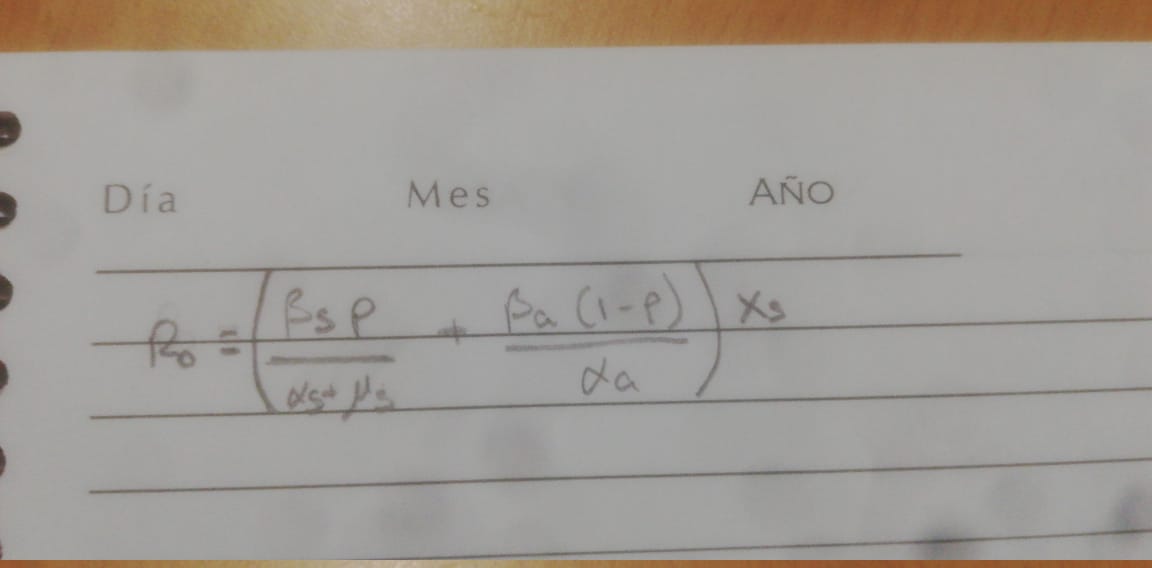 Día Mes AÑO
R₀ = (βs ρ / αs + μs + βa (1-ρ) / αa) Xs